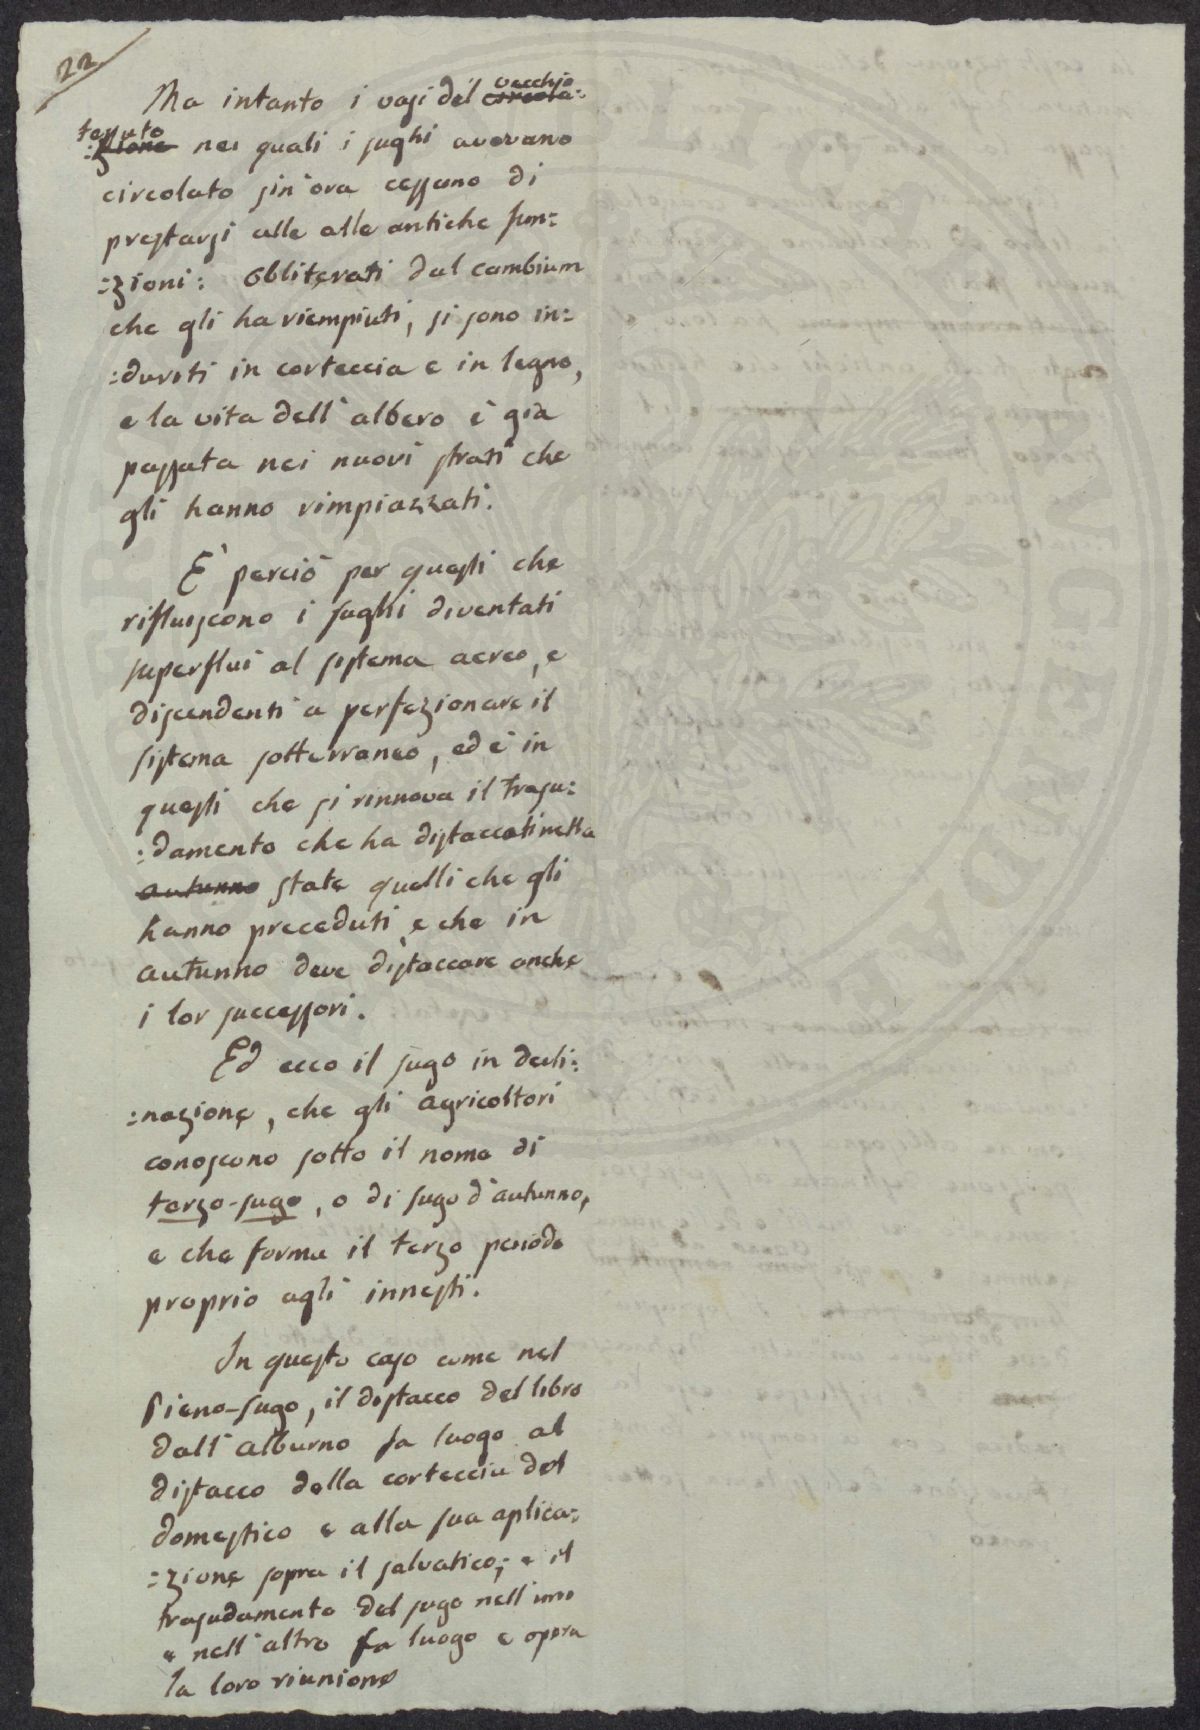 22
Ma intanto i vasi del vecchio circola:
tessuto :zione nei quali i sughi avevano
circolato sin'ora cessano di
prestarsi alle alle antiche fun:
:zioni: obliterati dal cambium
che gli ha riempiuti, si sono in:
:duriti in corteccia e in legno,
e la vita dell'albero è già
passata nei nuovi strati che
gli hanno rimpiazzati.
E' perciò per questi che
rifluiscono i sughi diventati
superflui al sistema aereo, e
discendenti a perfezionare il
sistema sotterraneo, ed è in
questi che si rinnova il trasu:
:damento che ha distaccati nella
autunno state quelli che gli
hanno preceduti, e che in
autunno deve distaccare anche
i lor successori.
Ed ecco il sugo in decli:
:nazione, che gli agricoltori
conoscono sotto il nome di
terzo-sugo, o di sugo d'autunno,
e che forma il terzo periodo
proprio agli innesti.
In questo caso come nel
Pieno-sugo, il distacco del libro
dall'alburno fa luogo al
distacco della corteccia del
domestico e alla sua aplica:
:zione sopra il salvatico; e il
trasudamento del sugo nell'uno
e nell'altro fa luogo e opera
la loro riunione